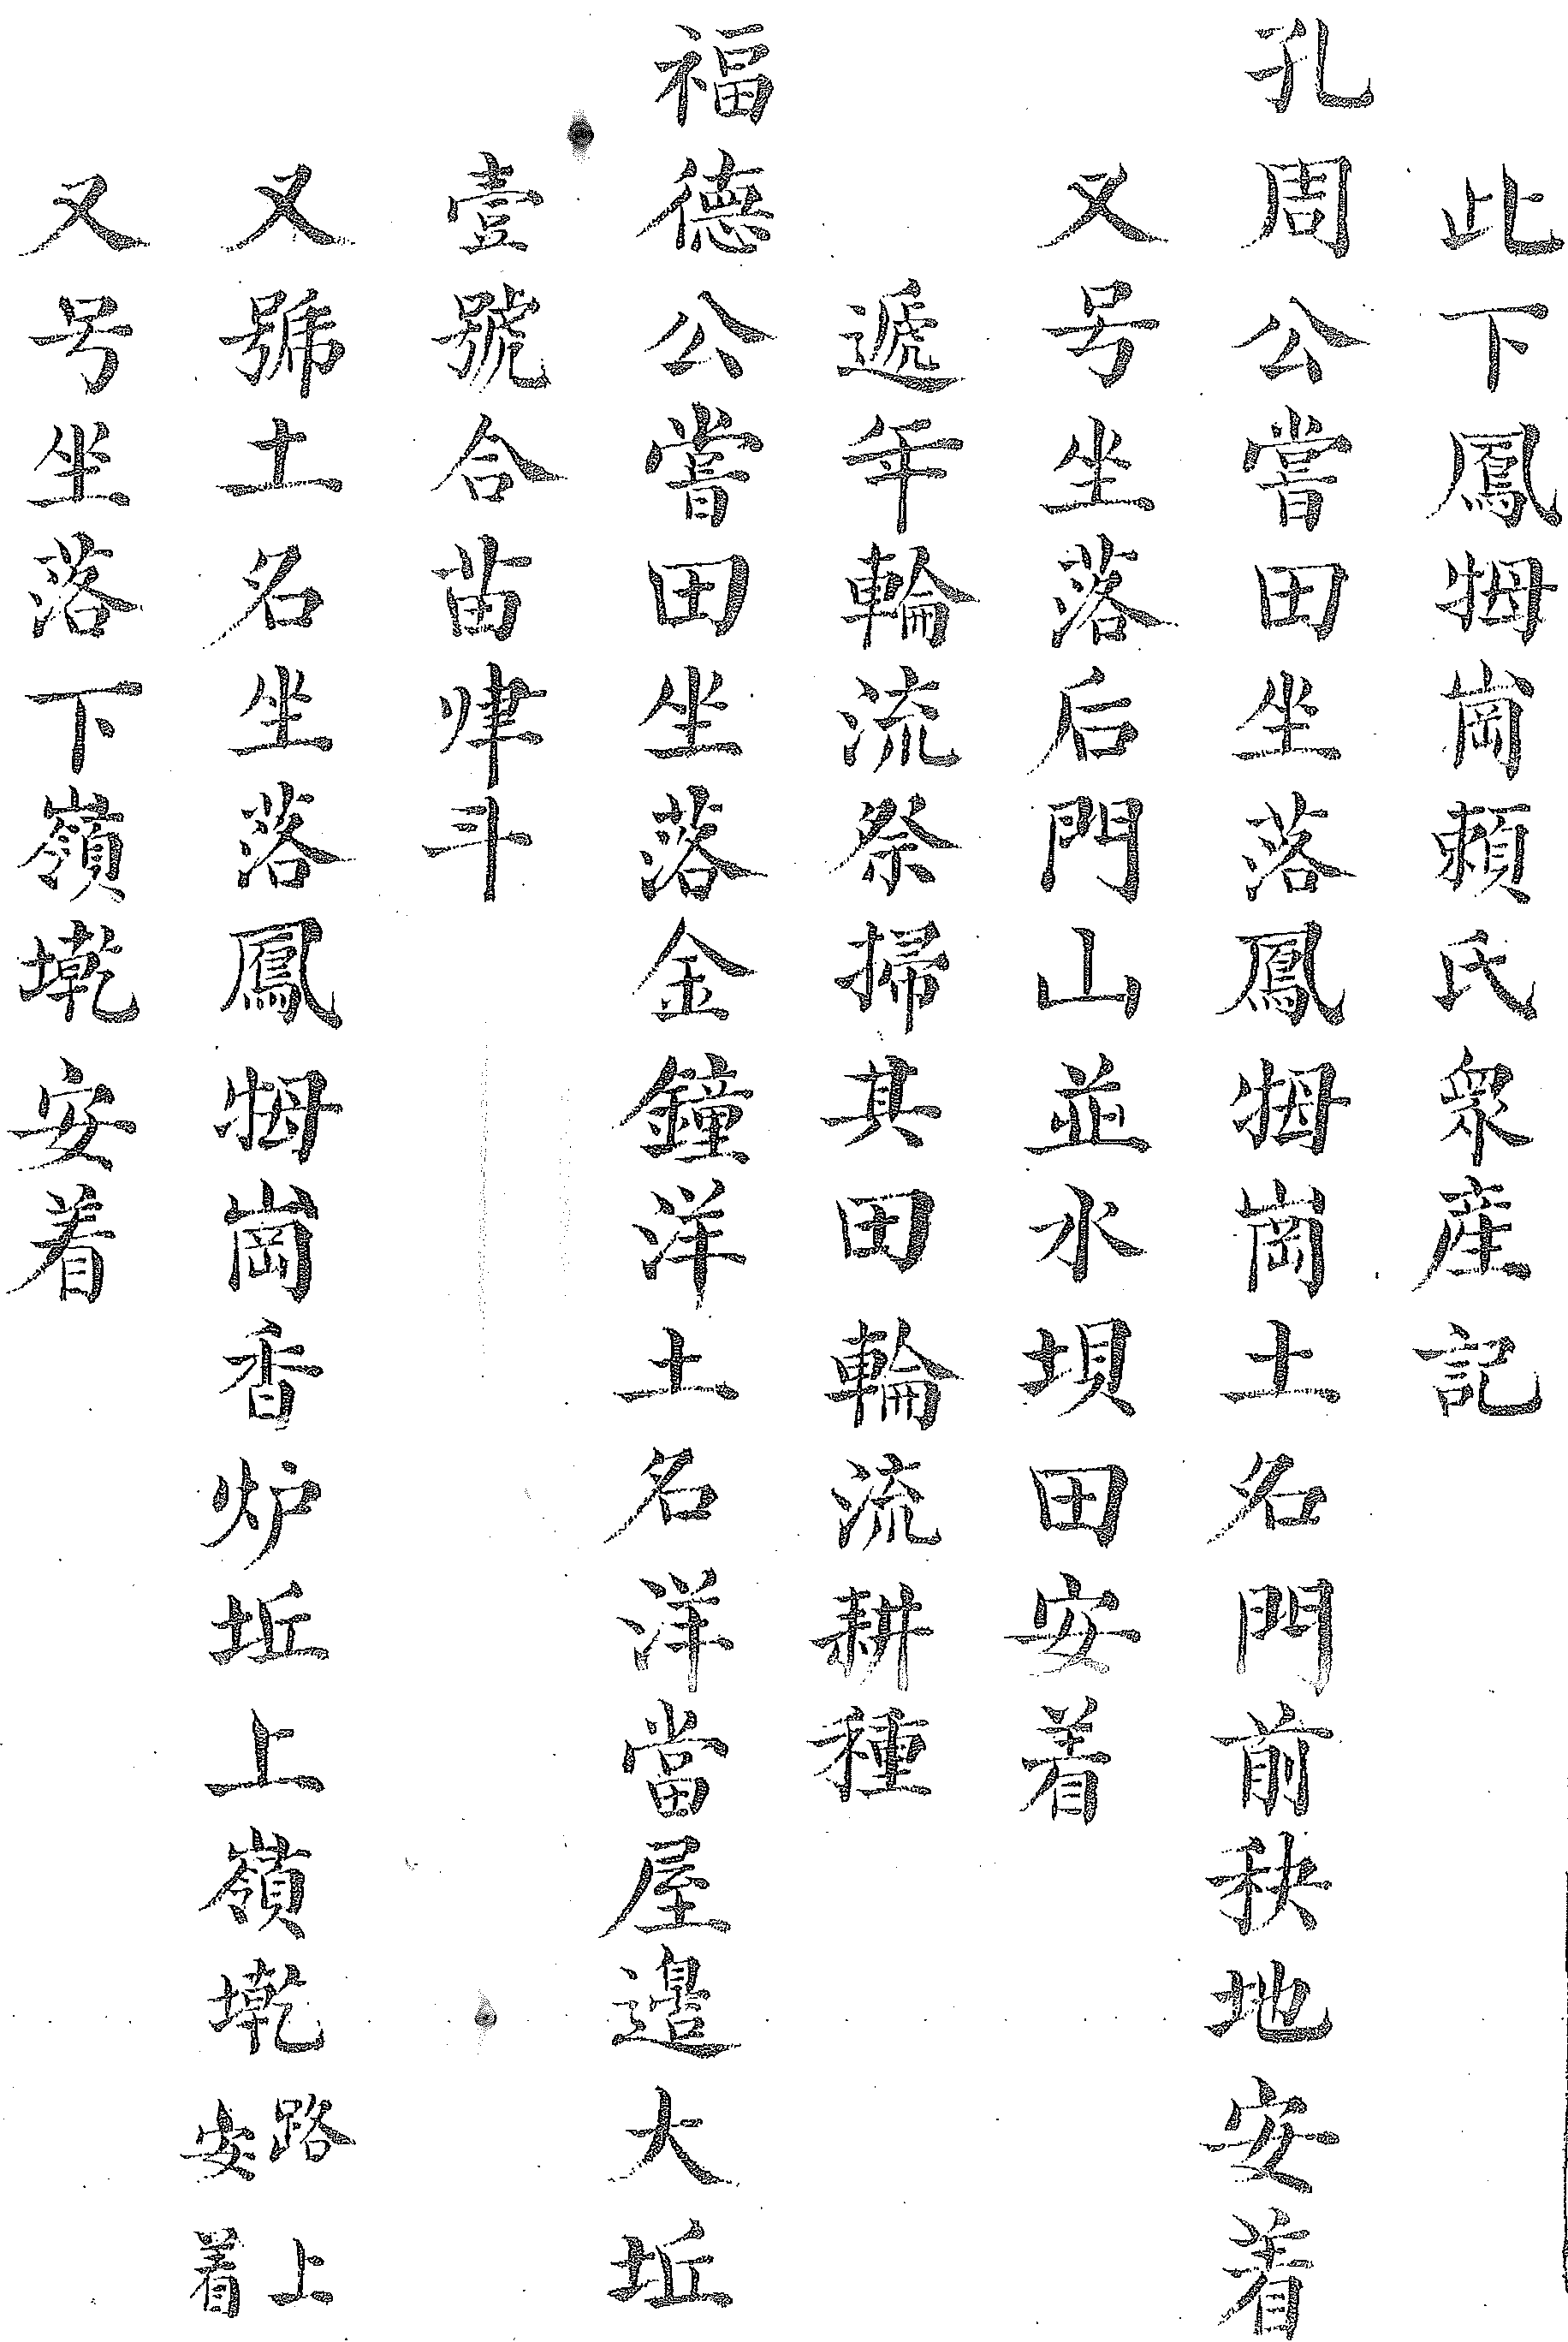 此下鳳㧅崗賴氏眾產記
孔周公嘗田坐落鳳㧅崗土名門前秧地安着
又号坐落后門山並水垻田安着
遞年輪流祭掃其田輪流耕種
福德公嘗田坐落金鐘洋土名洋當屋邊大坵
壹號合苗肂斗
又號土名坐落鳳㧅崗香炉坵上嶺墘路上安着
又号坐落下嶺墘安着